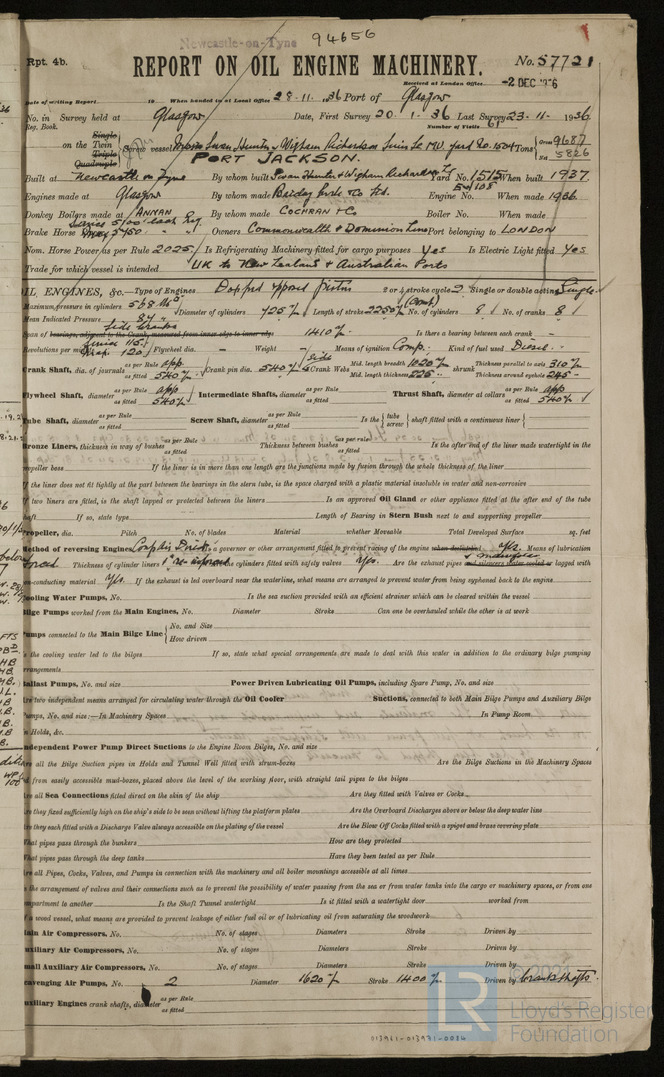 Newcastle-on-Tyne
94656
Rpt. 4b.
REPORT ON OIL ENGINE MACHINERY.
No. 57721
Received at London Office -2 DEC 1936
Date of writing Report 19 When handed in at Local Office 28.11.36 Port of Glasgow
No. in Survey held at Glasgow Date, First Survey 20.1.36 Last Survey 23-11-1936
Reg. Book. Number of Visits 61
Single
on the Twin Screw vessel Swan Hunter & Wigham Richardson Tons Gross 9687
Triple
Quadruple PORT JACKSON. Net 5826
Built at Newcastle on Tyne By whom built Swan Hunter & Wigham Richardson Yard No. 1515 When built 1937
Engines made at Glasgow By whom made Engine No. When made 1936
Donkey Boilers made at ANNAN By whom made COCHRAN & Co Boiler No. When made
Brake Horse Owners Commonwealth & Dominion Line Port belonging to LONDON
Nom. Horse Power as per Rule 2025 Is Refrigerating Machinery fitted for cargo purposes Yes Is Electric Light fitted Yes
Trade for which vessel is intended UK to New Zealand & Australian Ports
OIL ENGINES, &c. Type of Engines Doxford opposed pistons 2 or 4 stroke cycle 2 Single or double acting Single
Maximum pressure in cylinders Diameter of cylinders 725 Length of stroke 2250 No. of cylinders 8 No. of cranks 8
Mean Indicated Pressure 87
Span of bearings, adjacent to the Crank, measured from inner edge to inner edge 1410 Is there a bearing between each crank
Revolutions per minute Service 115 120 Flywheel dia. Weight Means of ignition Comp. Kind of fuel used Diesel
Crank Shaft, dia. of journals as per Rule app as fitted 540 Crank pin dia. 540 Crank Webs Mid. length breadth 1020 Mid. length thickness 225 shrunk Thickness parallel to axis 310 Thickness around eyehole 245
Flywheel Shaft, diameter as per Rule app as fitted 540 Intermediate Shafts, diameter as per Rule as fitted Thrust Shaft, diameter at collars as per Rule app as fitted 540
Tube Shaft, diameter as per Rule as fitted Screw Shaft, diameter as per Rule as fitted Is the tube screw shaft fitted with a continuous liner
Bronze Liners, thickness in way of bushes as per Rule as fitted Thickness between bushes as per rule as fitted Is the after end of the liner made watertight in the
propeller boss If the liner is in more than one length are the junctions made by fusion through the whole thickness of the liner
If the liner does not fit tightly at the part between the bearings in the stern tube, is the space charged with a plastic material insoluble in water and non-corrosive
If two liners are fitted, is the shaft lapped or protected between the liners Is an approved Oil Gland or other appliance fitted at the after end of the tube
shaft If so, state type Length of Bearing in Stern Bush next to and supporting propeller
Propeller, dia. Pitch No. of blades Material whether Moveable Total Developed Surface sq. feet
Method of reversing Engines Is a governor or other arrangement fitted to prevent racing of the engine when declutched yes. Means of lubrication
forced Thickness of cylinder liners Are the cylinders fitted with safety valves Yes. Are the exhaust pipes and silencers water cooled or lagged with
non-conducting material Yes. If the exhaust is led overboard near the waterline, what means are arranged to prevent water from being syphoned back to the engine
Cooling Water Pumps, No. Is the sea suction provided with an efficient strainer which can be cleared within the vessel
Bilge Pumps worked from the Main Engines, No. Diameter Stroke Can one be overhauled while the other is at work
Pumps connected to the Main Bilge Line No. and Size How driven
Is the cooling water led to the bilges If so, state what special arrangements are made to deal with this water in addition to the ordinary bilge pumping
arrangements
Ballast Pumps, No. and size Power Driven Lubricating Oil Pumps, including Spare Pump, No. and size
Are two independent means arranged for circulating water through the Oil Cooler Suctions, connected to both Main Bilge Pumps and Auxiliary Bilge
Pumps, No. and size:—In Machinery Spaces In Pump Room
In Holds, &c.
Independent Power Pump Direct Suctions to the Engine Room Bilges, No. and size
Are all the Bilge Suction pipes in Holds and Tunnel Well fitted with strum-boxes Are the Bilge Suctions in the Machinery Spaces
led from easily accessible mud-boxes, placed above the level of the working floor, with straight tail pipes to the bilges
Are all Sea Connections fitted direct on the skin of the ship Are they fitted with Valves or Cocks
Are they fixed sufficiently high on the ship's side to be seen without lifting the platform plates Are the Overboard Discharges above or below the deep water line
Are they each fitted with a Discharge Valve always accessible on the plating of the vessel Are the Blow Off Cocks fitted with a spigot and brass covering plate
What pipes pass through the bunkers How are they protected
What pipes pass through the deep tanks Have they been tested as per Rule
Are all Pipes, Cocks, Valves, and Pumps in connection with the machinery and all boiler mountings accessible at all times
Is the arrangement of valves and their connections such as to prevent the possibility of water passing from the sea or from water tanks into the cargo or machinery spaces, or from one
compartment to another Is the Shaft Tunnel watertight Is it fitted with a watertight door worked from
If a wood vessel, what means are provided to prevent leakage of either fuel oil or of lubricating oil from saturating the woodwork
Main Air Compressors, No. No. of stages Diameters Stroke Driven by
Auxiliary Air Compressors, No. No. of stages Diameters Stroke Driven by
Small Auxiliary Air Compressors, No. No. of stages Diameters Stroke Driven by
Scavenging Air Pumps, No. 2 Diameter 1620 Stroke 1400 Driven by crankshafts
Auxiliary Engines crank shafts, diameter as per Rule as fitted
LR
Lloyd's Register
Foundation
013961-013971-0024